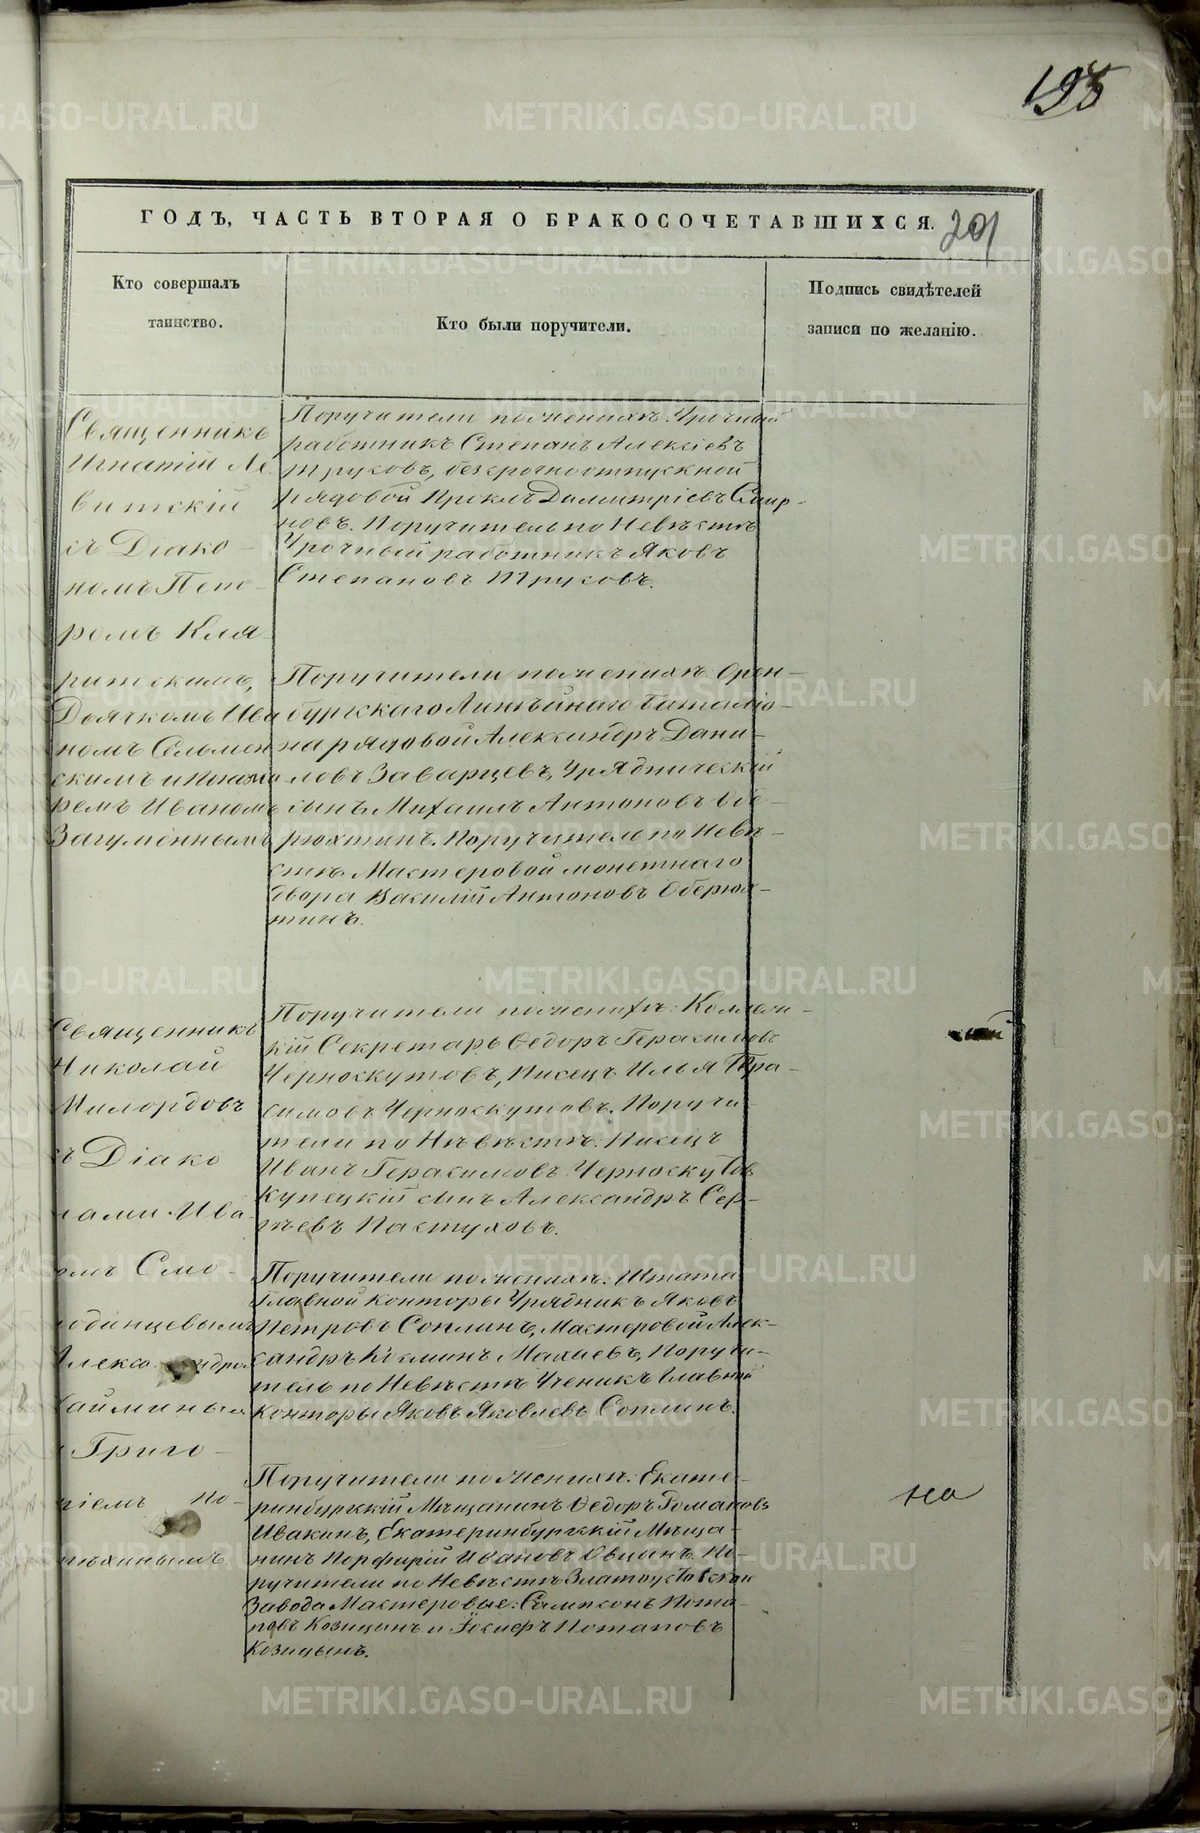 195
ГОДЪ, ЧАСТЬ ВТОРАЯ О БРАКОСОЧЕТАВШИХСЯ.
201
Кто совершалъ
таинство.
Кто были поручители.
Подпись свидѣтелей
записи по желанію.
Священникъ
Игнатій Ле
витскій
съ Діако-
номъ Пет
ромъ Кля-
ритскимъ,
Дьячкомъ Ива
номъ Сельмен
скимъ и Понома
ремъ Иваномъ
Загуменнымъ
Поручители по женихѣ: Урочный
работникъ Степанъ Алексѣевъ
Труховъ, безсрочноотпускной
рядовой Проклъ Димитріевъ Смир-
новъ. Поручитель по Невѣстѣ
Урочный работникъ Яковъ
Степановъ Труховъ.
Поручители по женихѣ: Орен-
бургскаго Линѣйнаго баталіо-
на рядовой Александръ Дани-
ловъ Заварцевъ, Урядническій
сынъ Михаилъ Антоновъ Обе-
рюхтинъ. Поручитель по Невѣ-
стѣ: Мастеровой монетнаго
двора Василій Антоновъ Оберюх-
тинъ.
Священникъ
Николай
Милордовъ
съ Діако
нами: Ива
омъ Смо-
родинцевымъ
Алекса ндром
айминым
Григо-
ріемъ По-
Поручители по женихѣ: Коллеж-
скій Секретарь Ѳедоръ Герасимовъ
Черноскутовъ, Писецъ Илья Гера-
симовъ Черноскутовъ. Поручи-
тели по Невѣстѣ: Писецъ
Иванъ Герасимовъ Черноскутов
Купецкій сынъ Александръ Сер-
гѣевъ Пастуховъ.
Поручители по женихѣ: Штата
Главной Конторы Урядникъ Яковъ
Петровъ Соплинъ, Мастеровой Алек-
сандръ Козминъ Махаевъ, Поручи-
тель по Невѣстѣ Ученикъ Главной
Конторы Яковъ Яковлевъ Соплинъ.
Поручители по женихѣ: Екате-
ринбургскій Мѣщанинъ Ѳедоръ Романовъ
Ивакинъ, Екатеринбургскій Мѣща-
нинъ Порфирій Ивановъ Овчинъ. По-
ручители по Невѣстѣ Златоустовскаго
Завода Мастеровые: Сампсонъ Пота-
повъ Козицынъ и Іосифъ Потаповъ
Козицынъ.
но
METRIKI.GASO-URAL.RU